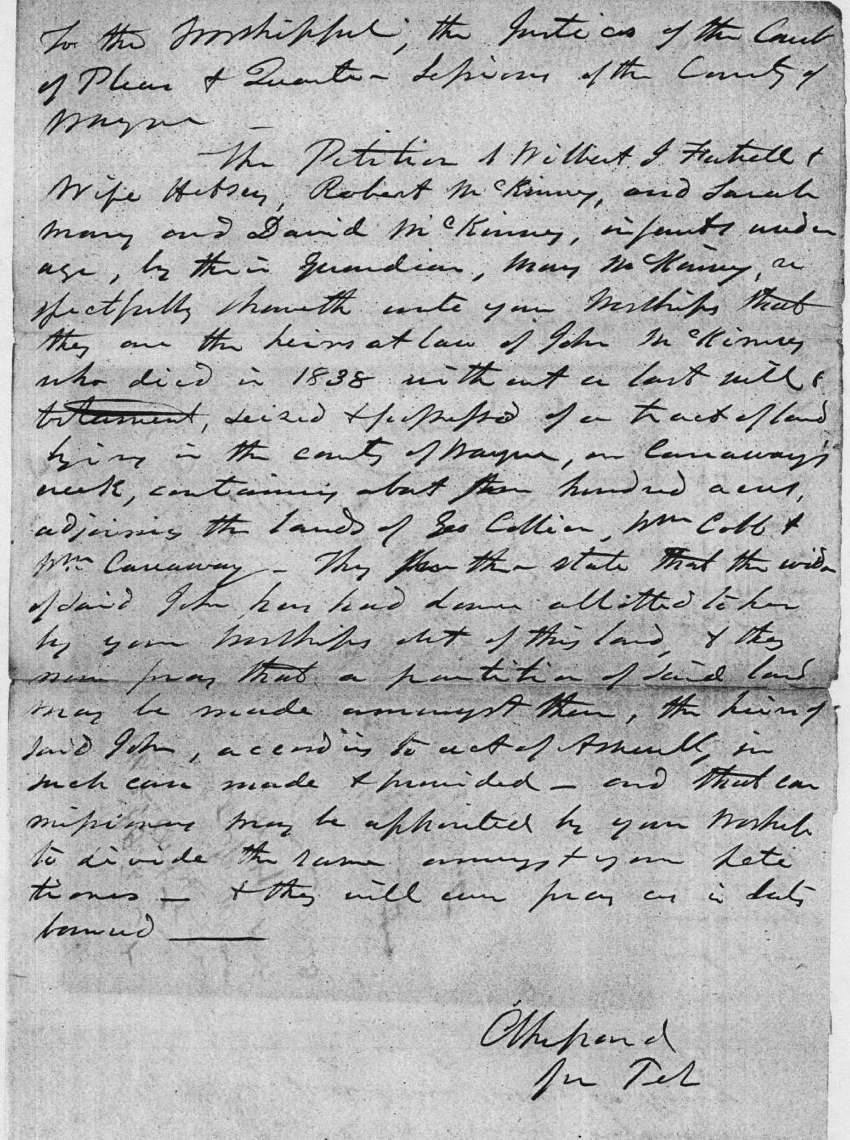 To the Worshipful, the Justices of the Court
of Pleas & Quarter Sessions of the County of
Wayne
The Petition of Wilbert J &
Wife Hepsey, Robert McKinney, and Sarah
Mary and David McKinney, infants under
age, by their Guardian, Mary McKinney, re
spectfully sheweth unto your Worships that
they are the heirs at law of John McKinney
who died in 1838 without a last will &
testament, seized & possessed of a tract of land
lying in the county of Wayne, on Carraway's
creek, containing about hundred acres,
adjoining the lands of Geo Collier, Wm Cobb &
Wm Carraway - They further state that the widow
of said John has had dower allotted to her
by your Worships out of this land, & they
now pray that a partition of said land
may be made amongst them, the heirs of
said John, according to act of Assembly, in
such case made & provided - and that com
missioners may be appointed by your Worships
to divide the same amongst your peti
tioners - & they will ever pray as in duty
bound
for Pet